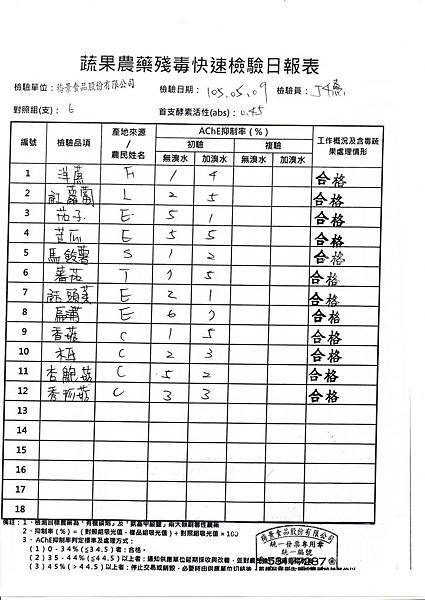 蔬果農藥殘毒快速檢驗日報表
檢驗單位: 裕景食品股份有限公司 檢驗日期: 105.05.09 檢驗員:
對照組(支): 6 首支酵素活性(abs): 0.45
編號 檢驗品項 產地來源/農民姓名 AChE抑制率(%) 工作概況及含毒蔬果處理情形
初驗 複驗
無溴水 加溴水 無溴水 加溴水
1 洋蔥 1 4 合格
2 紅蘿蔔 L 2 5 合格
3 茄子 E 5 1 合格
4 苦瓜 E 5 5 合格
5 馬鈴薯 S 1 2 合格
6 蕃茄 T 7 5 合格
7 E 2 1 合格
8 扁蒲 E 6 7 合格
9 香菇 C 1 5 合格
10 C 2 3 合格
11 杏鮑菇 C 5 2 合格
12 C 3 3 合格
13
14
15
16
17
18
備註: 1、檢測目標農藥為「有機磷劑」及「氨基甲酸鹽」兩大類劇毒性農藥
2、抑制率(%)=(對照組吸光值-樣品組吸光值)÷對照組吸光值×100
3、AChE抑制率判定標準及處理方式:
(1) 0-34%(≦34.5)者:合格。
(2) 35-44%(≦44.5)以上者:通知供應單位延期採收與改善,
(3) 45%(>44.5)以上者:停止交易或銷毀,
裕景食品股份有限公司
統一發票專用章
統一編號